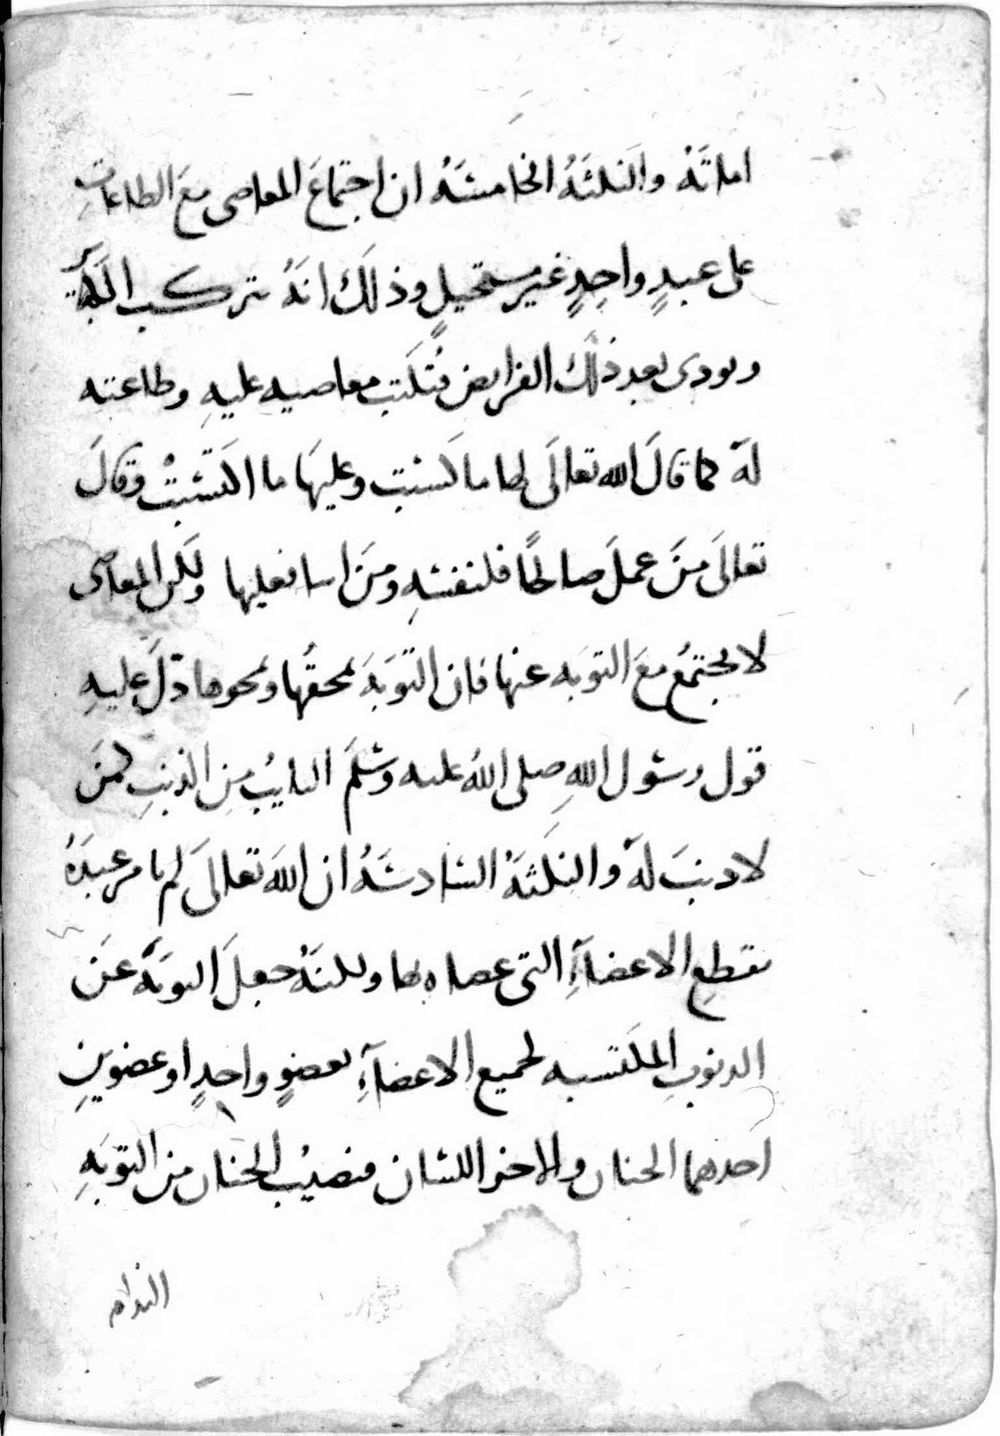 اماتَهُ والنكتَهُ الخامسَهُ ان اجتماعَ المعاصى معَ الطاعاتِ
على عبدٍ واحِدٍ غيرُ مستحيلٍ وذلكَ انهُ يرتكب الكبآئر
ويودى بعد ذلك الفرايض فتُكتب معاصيه عليهِ وطاعته
لهُ كما قالَ الله تعالَى لها ما كسَبت وعليهَا ما اكتسَبتْ وقالَ
تعالَى منَ عملَ صالحًا فلنفسهِ ومنَ اسا فعليها ولكن المعاصى
لا تجتمعُ معَ التوبه عنها فان التوبَهَ تمحقُها وتمحوها دَلَّ عليهِ
قول رسُول اللهِ صلى اللهُ عليه وسَلمَ التايبُ منِ الذنبِ كمنَ
لا ذنبَ لهُ والنكتهُ السَادسَهُ ان اللهَ تعالَى لم يامر عبدَهُ
بقطعِ الاعضآءِ التى عصاه بها ولكنهُ جعلَ التوبَهَ عَنَ
الذنوبِ المكتسبه لجميع الاعضآءِ بعضوٍ واحدٍ اوعضوينِ
احدهما الجنان والاخر اللسَان فنصيبُ الجنان من التوبَهِ
الندام